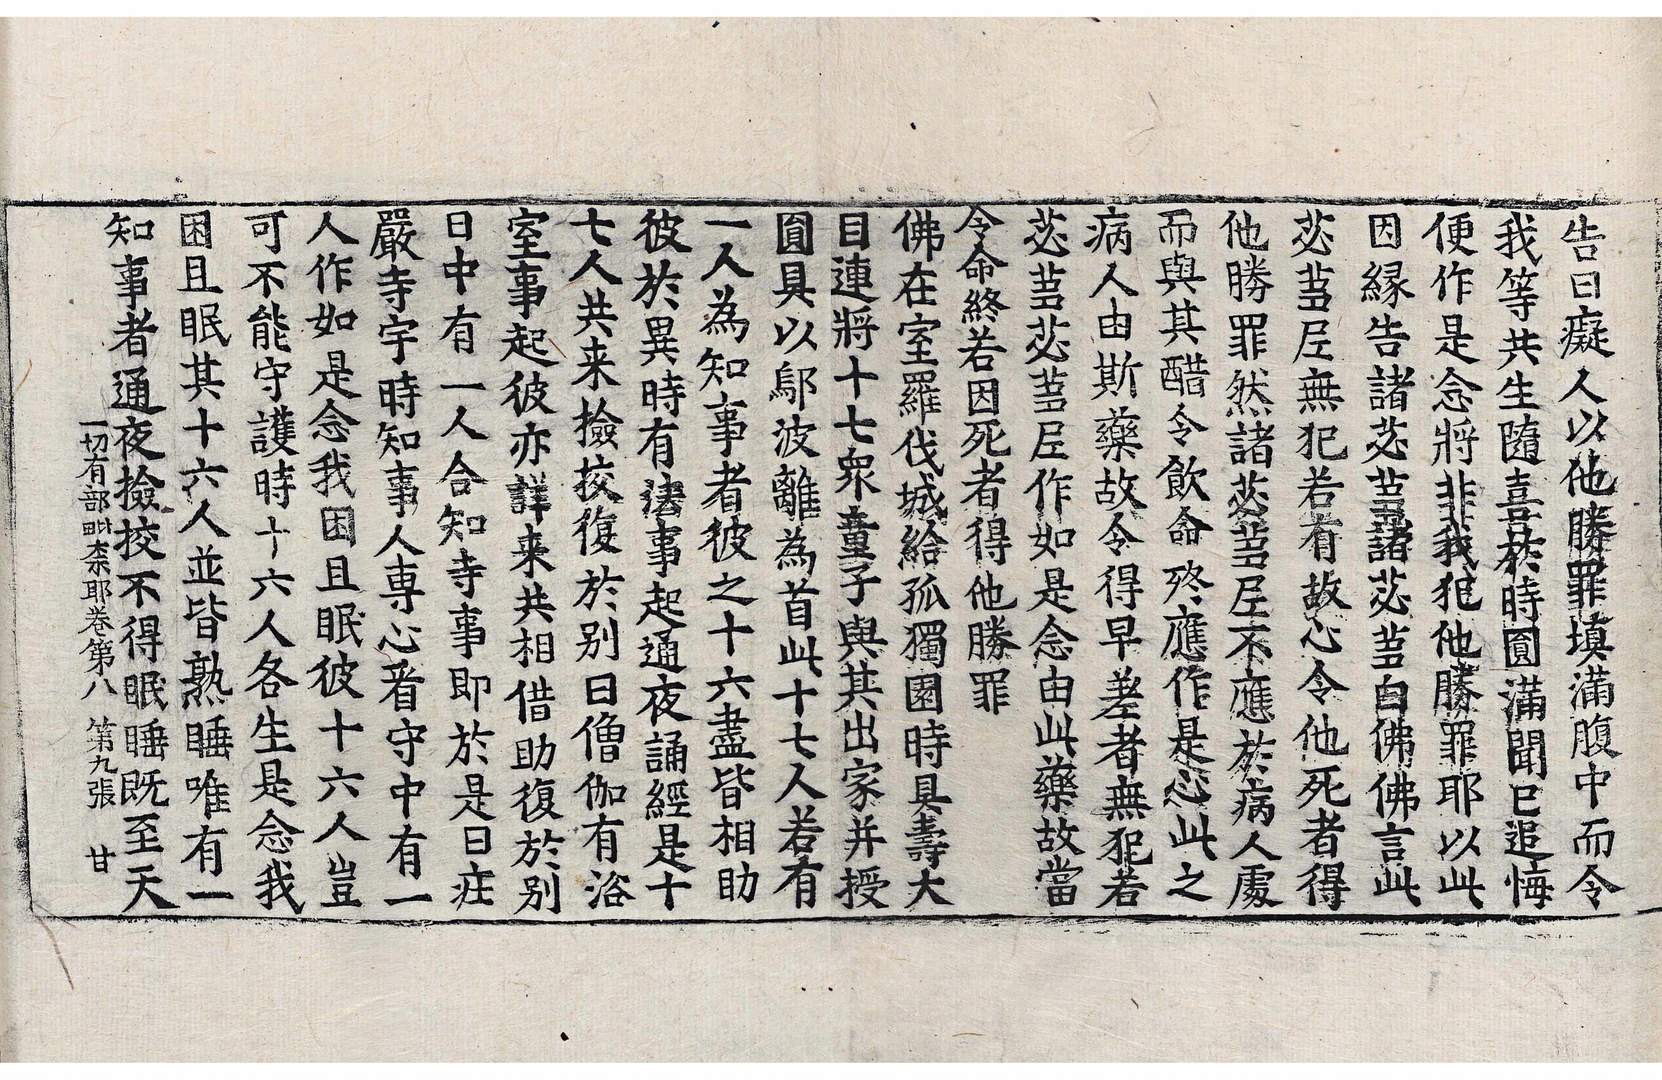 告曰癡人以他勝罪填滿腹中而令
我等共生隨喜於時圓滿聞已追悔
便作是念將非我犯他勝罪耶以此
因縁告諸苾芻諸苾芻白佛佛言此
苾芻尼無犯若有故心令他死者得
他勝罪然諸苾芻尼不應於病人處
而與其醋令飲命終應作是心此之
病人由斯藥故令得早差者無犯若
苾芻苾芻尼作如是念由此藥故當
令命終若因死者得他勝罪
佛在室羅伐城給孤獨園時具壽大
目連將十七衆童子與其出家并授
圓具以鄔波離為首此十七人若有
一人為知事者彼之十六盡皆相助
彼於異時有法事起通夜誦經是十
七人共来撿挍復於別日僧伽有浴
室事起彼亦詳来共相借助復於別
日中有一人合知寺事即於是日莊
嚴寺宇時知事人専心看守中有一
人作如是念我困且眠彼十六人豈
可不能守護時十六人各生是念我
困且眠其十六人並皆熟睡唯有一
知事者通夜撿挍不得眠睡既至天
一切有部毗柰耶卷第八 第九張 甘